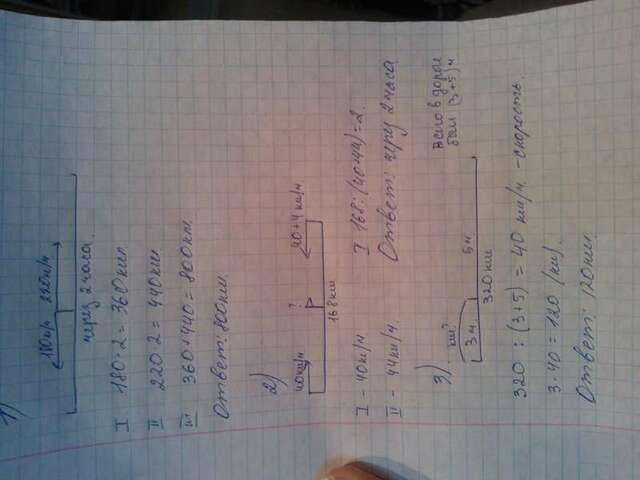 1)
180км/ч 220км/ч
через 2 часа
I 180·2=360км
II 220·2=440км
III 360+440=800км.
Ответ: 800км.
2)
40км/ч ? 40+4 км/ч
168км
I - 40км/ч
II - 44км/ч.
I 168:(40+44)=2.
Ответ: через 2 часа
3)
км? всего в дороге
был (3+5)ч
3ч 5ч
320км
320:(3+5)=40 км/ч - скорость.
3·40=120 (км).
Ответ: 120км